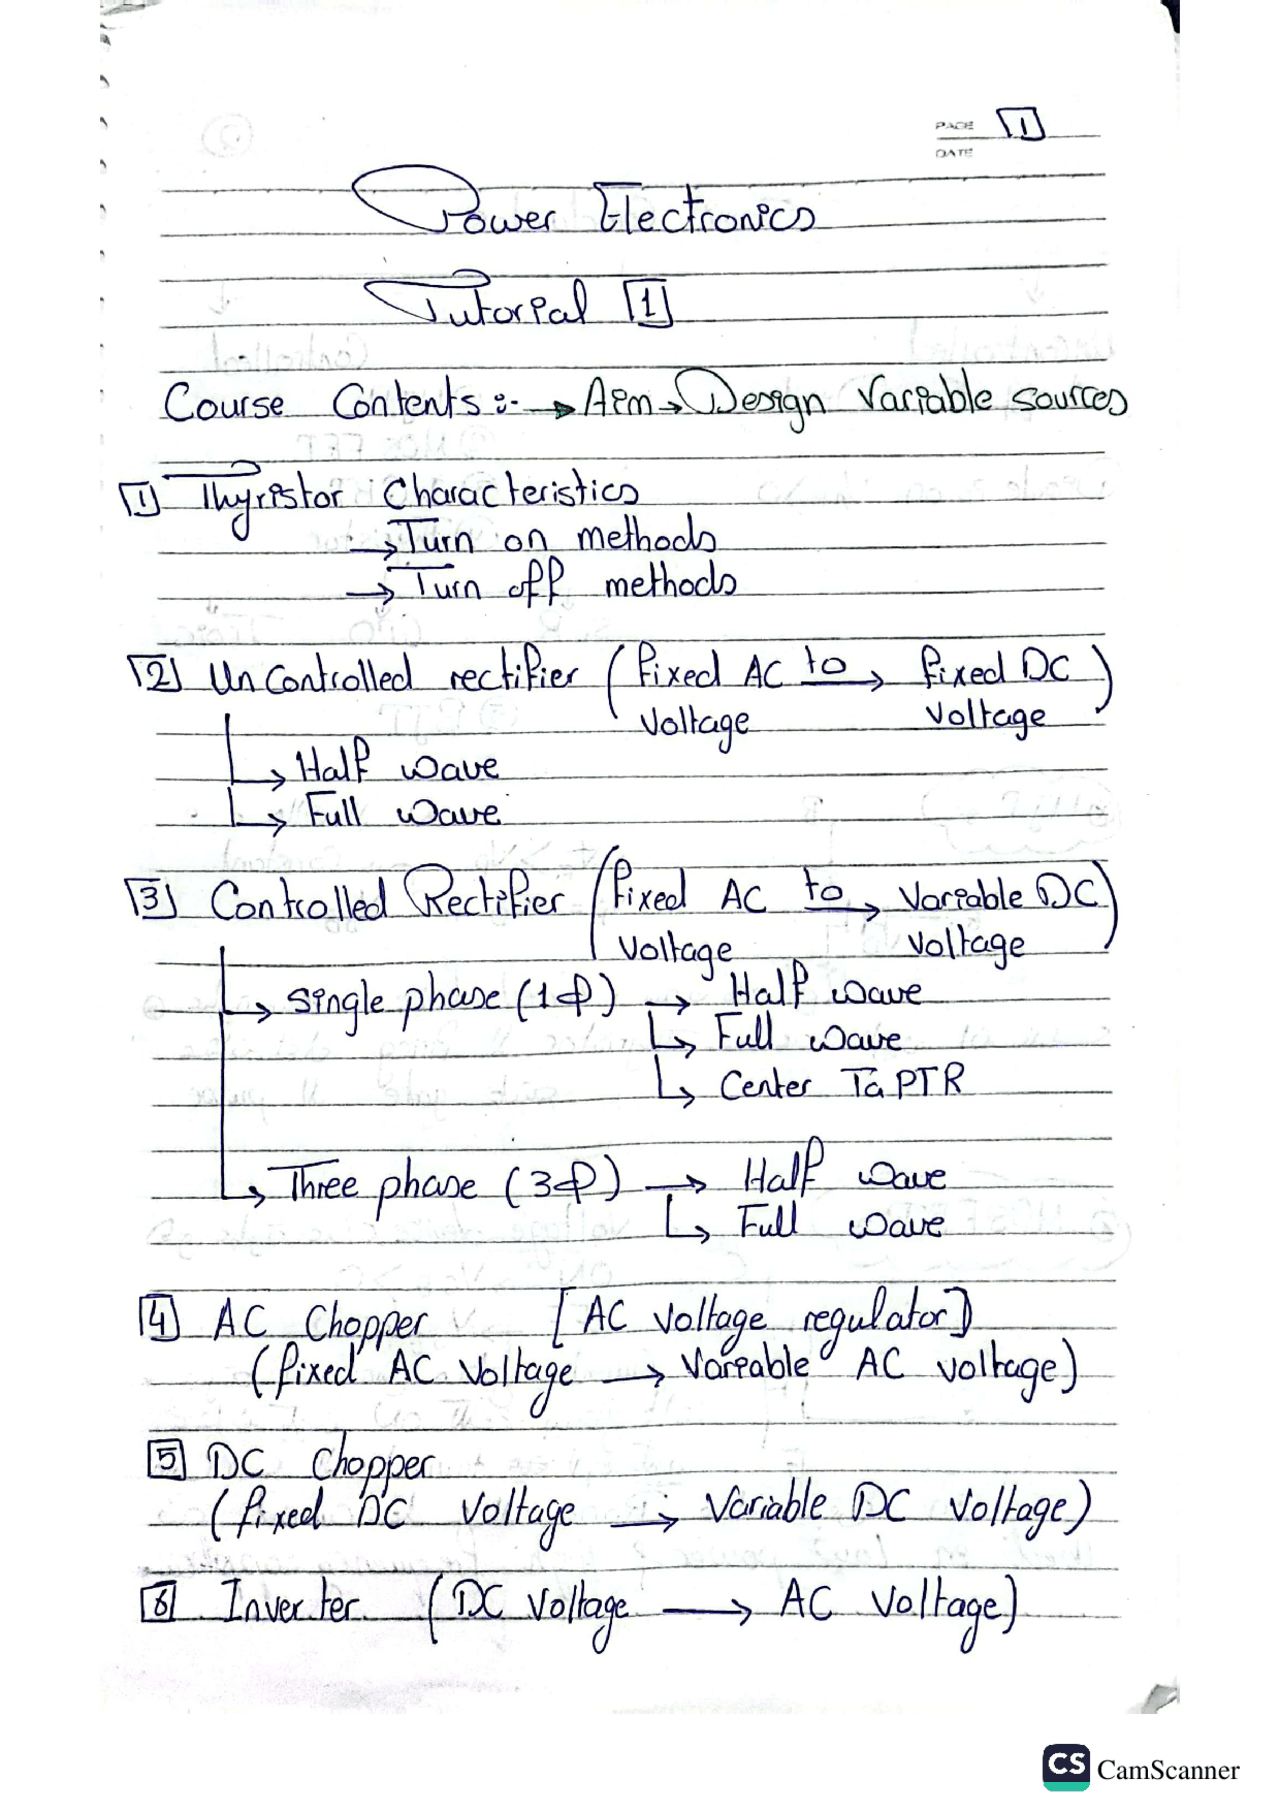 PAGE 1
DATE
Power Electronics
Tutorial 1
Course Contents :- → Aim → Design Variable sources
1 Thyristor Characteristics
→ Turn on methods
→ Turn off methods
2 Uncontrolled rectifier (fixed AC to → fixed DC)
voltage voltage
↳ Half wave
↳ Full wave
3 Controlled Rectifier (fixed AC to → Variable DC)
voltage voltage
↳ Single phase (1ф) → Half wave
↳ Full wave
↳ Center TaPTR
↳ Three phase (3ф) → Half wave
↳ Full wave
4 AC Chopper [AC voltage regulator]
(fixed AC Voltage → Variable AC voltage)
5 DC Chopper
(fixed DC Voltage → Variable DC Voltage)
6 Inverter (DC Voltage → AC Voltage)
CS CamScanner